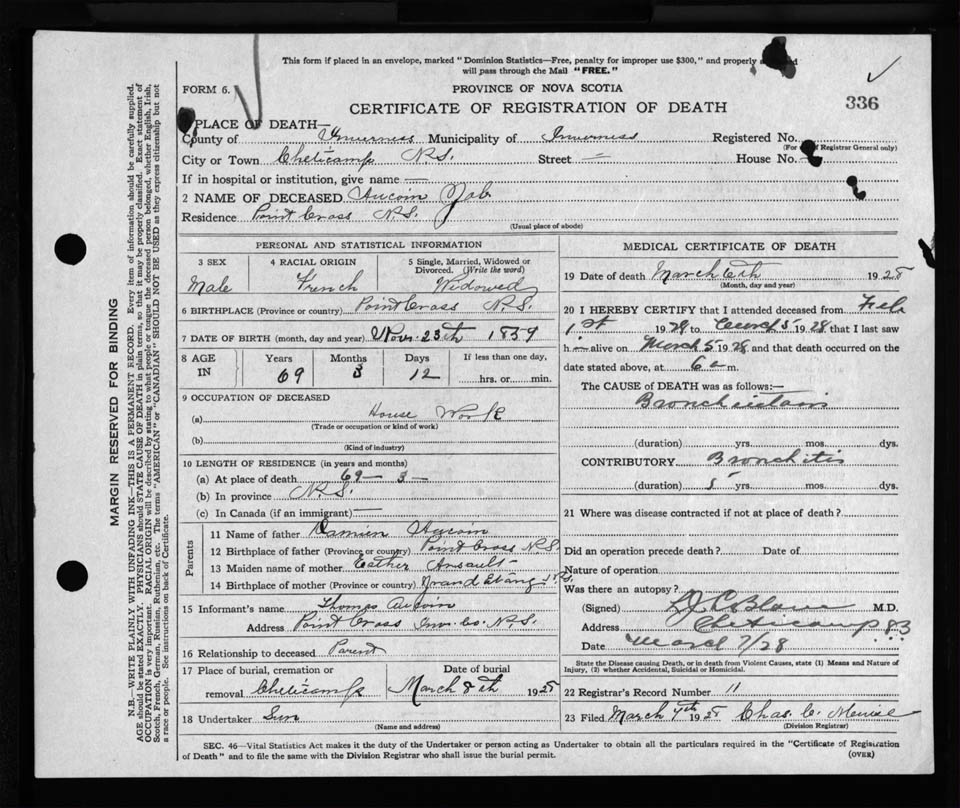 This form if placed in an envelope, marked "Dominion Statistics—Free, penalty for improper use $300," and properly
will pass through the Mail "FREE."
FORM 6.
PROVINCE OF NOVA SCOTIA
CERTIFICATE OF REGISTRATION OF DEATH
336
PLACE OF DEATH—
County of Inverness Municipality of Inverness Registered No.
(For use of Registrar General only)
City or Town Cheticamp N.S. Street — House No.
If in hospital or institution, give name —
2 NAME OF DECEASED Aucoin Job
Residence Point Cross N.S.
(Usual place of abode)
PERSONAL AND STATISTICAL INFORMATION
3 SEX
Male
4 RACIAL ORIGIN
French
5 Single, Married, Widowed or
Divorced. (Write the word)
Widowed
6 BIRTHPLACE (Province or country) Point Cross N.S.
7 DATE OF BIRTH (month, day and year) Nov. 23th 1859
8 AGE IN
Years 69
Months 3
Days 12
If less than one day,
hrs. or min.
9 OCCUPATION OF DECEASED
(a) House Work
(Trade or occupation or kind of work)
(b)
(Kind of industry)
10 LENGTH OF RESIDENCE (in years and months)
(a) At place of death 69 — 3 —
(b) In province N.S.
(c) In Canada (if an immigrant) —
Parents
11 Name of father Damien Aucoin
12 Birthplace of father (Province or country) Point Cross N.S.
13 Maiden name of mother Esther Arsault
14 Birthplace of mother (Province or country) Grand Etang N.S.
15 Informant's name Thomas Aucoin
Address Point Cross Inv. Co. N.S.
16 Relationship to deceased Parent
17 Place of burial, cremation or
removal Cheticamp
Date of burial
March 8th 1928
18 Undertaker
(Name and address)
MEDICAL CERTIFICATE OF DEATH
19 Date of death March 6th 1928
(Month, day and year)
20 I HEREBY CERTIFY that I attended deceased from Feb
1st 1928 to March 5 1928 that I last saw
h alive on March 5 1928 and that death occurred on the
date stated above, at 6 a m.
The CAUSE OF DEATH was as follows:—
(duration) yrs. mos. dys.
CONTRIBUTORY Bronchitis
(duration) 5 yrs. mos. dys.
21 Where was disease contracted if not at place of death?
Did an operation precede death? Date of
Nature of operation
Was there an autopsy?
(Signed) M.D.
Address Cheticamp
Date March 7/28
State the Disease causing Death, or in death from Violent Causes, state (1) Means and Nature of
Injury, (2) whether Accidental, Suicidal or Homicidal.
22 Registrar's Record Number 11
23 Filed March 7th 1928 Chas. C.
(Division Registrar)
SEC. 46—Vital Statistics Act makes it the duty of the Undertaker or person acting as Undertaker to obtain all the particulars required in the "Certificate of Registration
of Death" and to file the same with the Division Registrar who shall issue the burial permit.
(OVER)
MARGIN RESERVED FOR BINDING
N.B.—WRITE PLAINLY WITH UNFADING INK—THIS IS A PERMANENT RECORD. Every item of information should be carefully supplied.
AGE should be stated EXACTLY. PHYSICIANS should STATE CAUSE OF DEATH in plain terms, so that it may be properly classified. Exact statement of
OCCUPATION is very important. RACIAL ORIGIN will be described by stating to what people or tongue the deceased person belonged, whether English, Irish,
Scotch, French, German, Russian, Ruthenian, etc. The terms "AMERICAN" or "CANADIAN" SHOULD NOT BE USED as they express citizenship but not
a race or people. See instructions on back of Certificate.